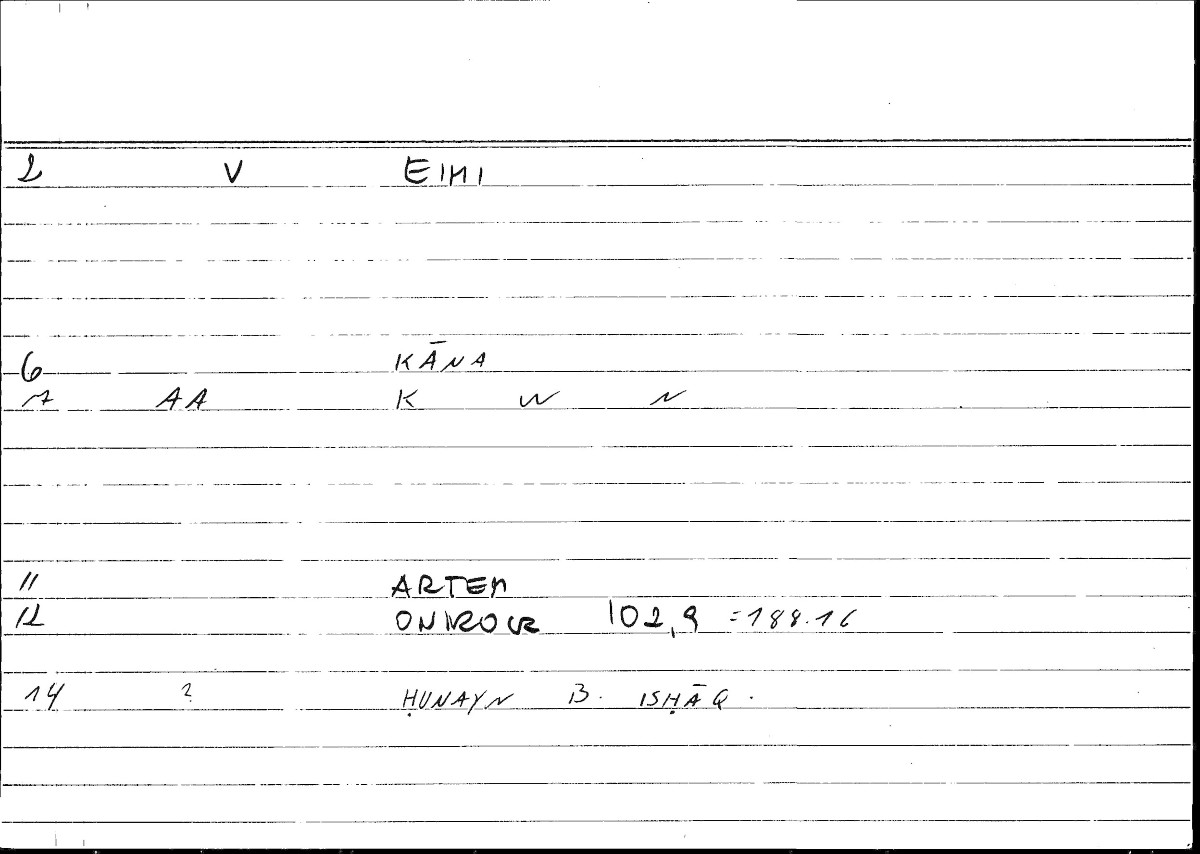 2 V EIMI
6 KĀNA
7 AA K W N
11 ARTEM
12 ONIROCR 102,9 =188.16
14 ? ḤUNAYN B. ISḤĀQ.